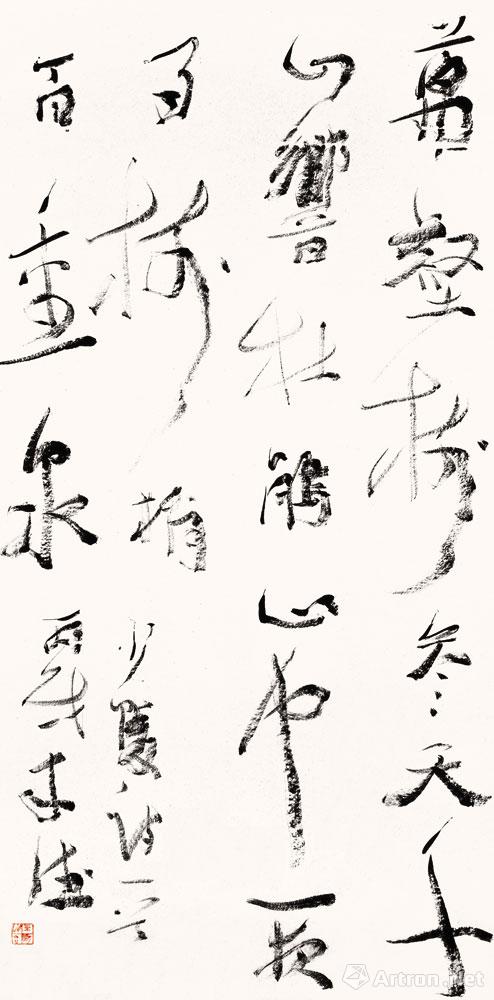 萬壑樹參天千
山響杜鵑山中一夜
雨樹梢
百重泉
少陵詩一首
丙戌
Artron.net